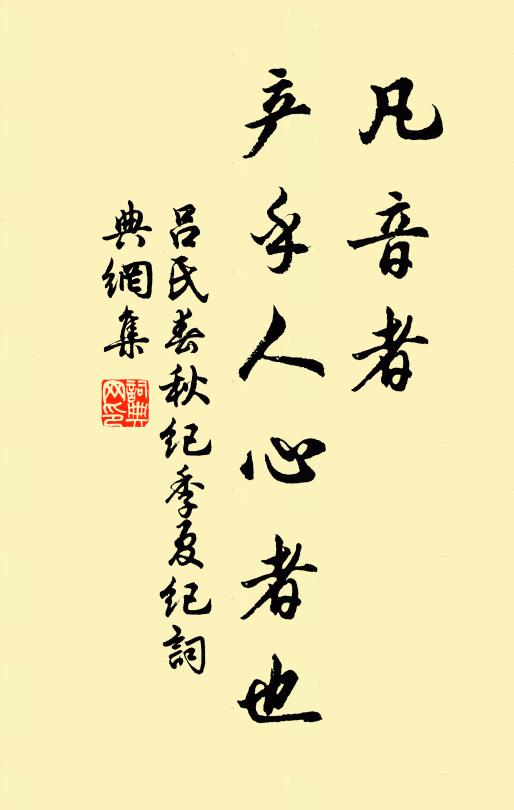 凡音者
产乎人心者也
吕氏春秋纪季夏纪詞
典網集
詞典
网印